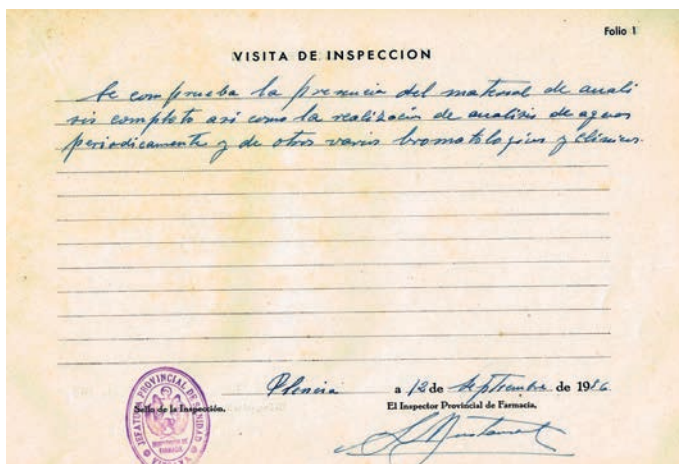 Folio 1
VISITA DE INSPECCION
Se comprueba la presencia del material de anali
sis completo asi como la realización de analisis de aguas
periodicamente y de otros varios bromatologicos y clinicos.
Plencia a 12 de Septiembre de 19
Sello de la Inspección.
El Inspector Provincial de Farmacia,
JEFATURA PROVINCIAL DE SANIDAD
INSPECCION DE FARMACIA
VIZCAYA